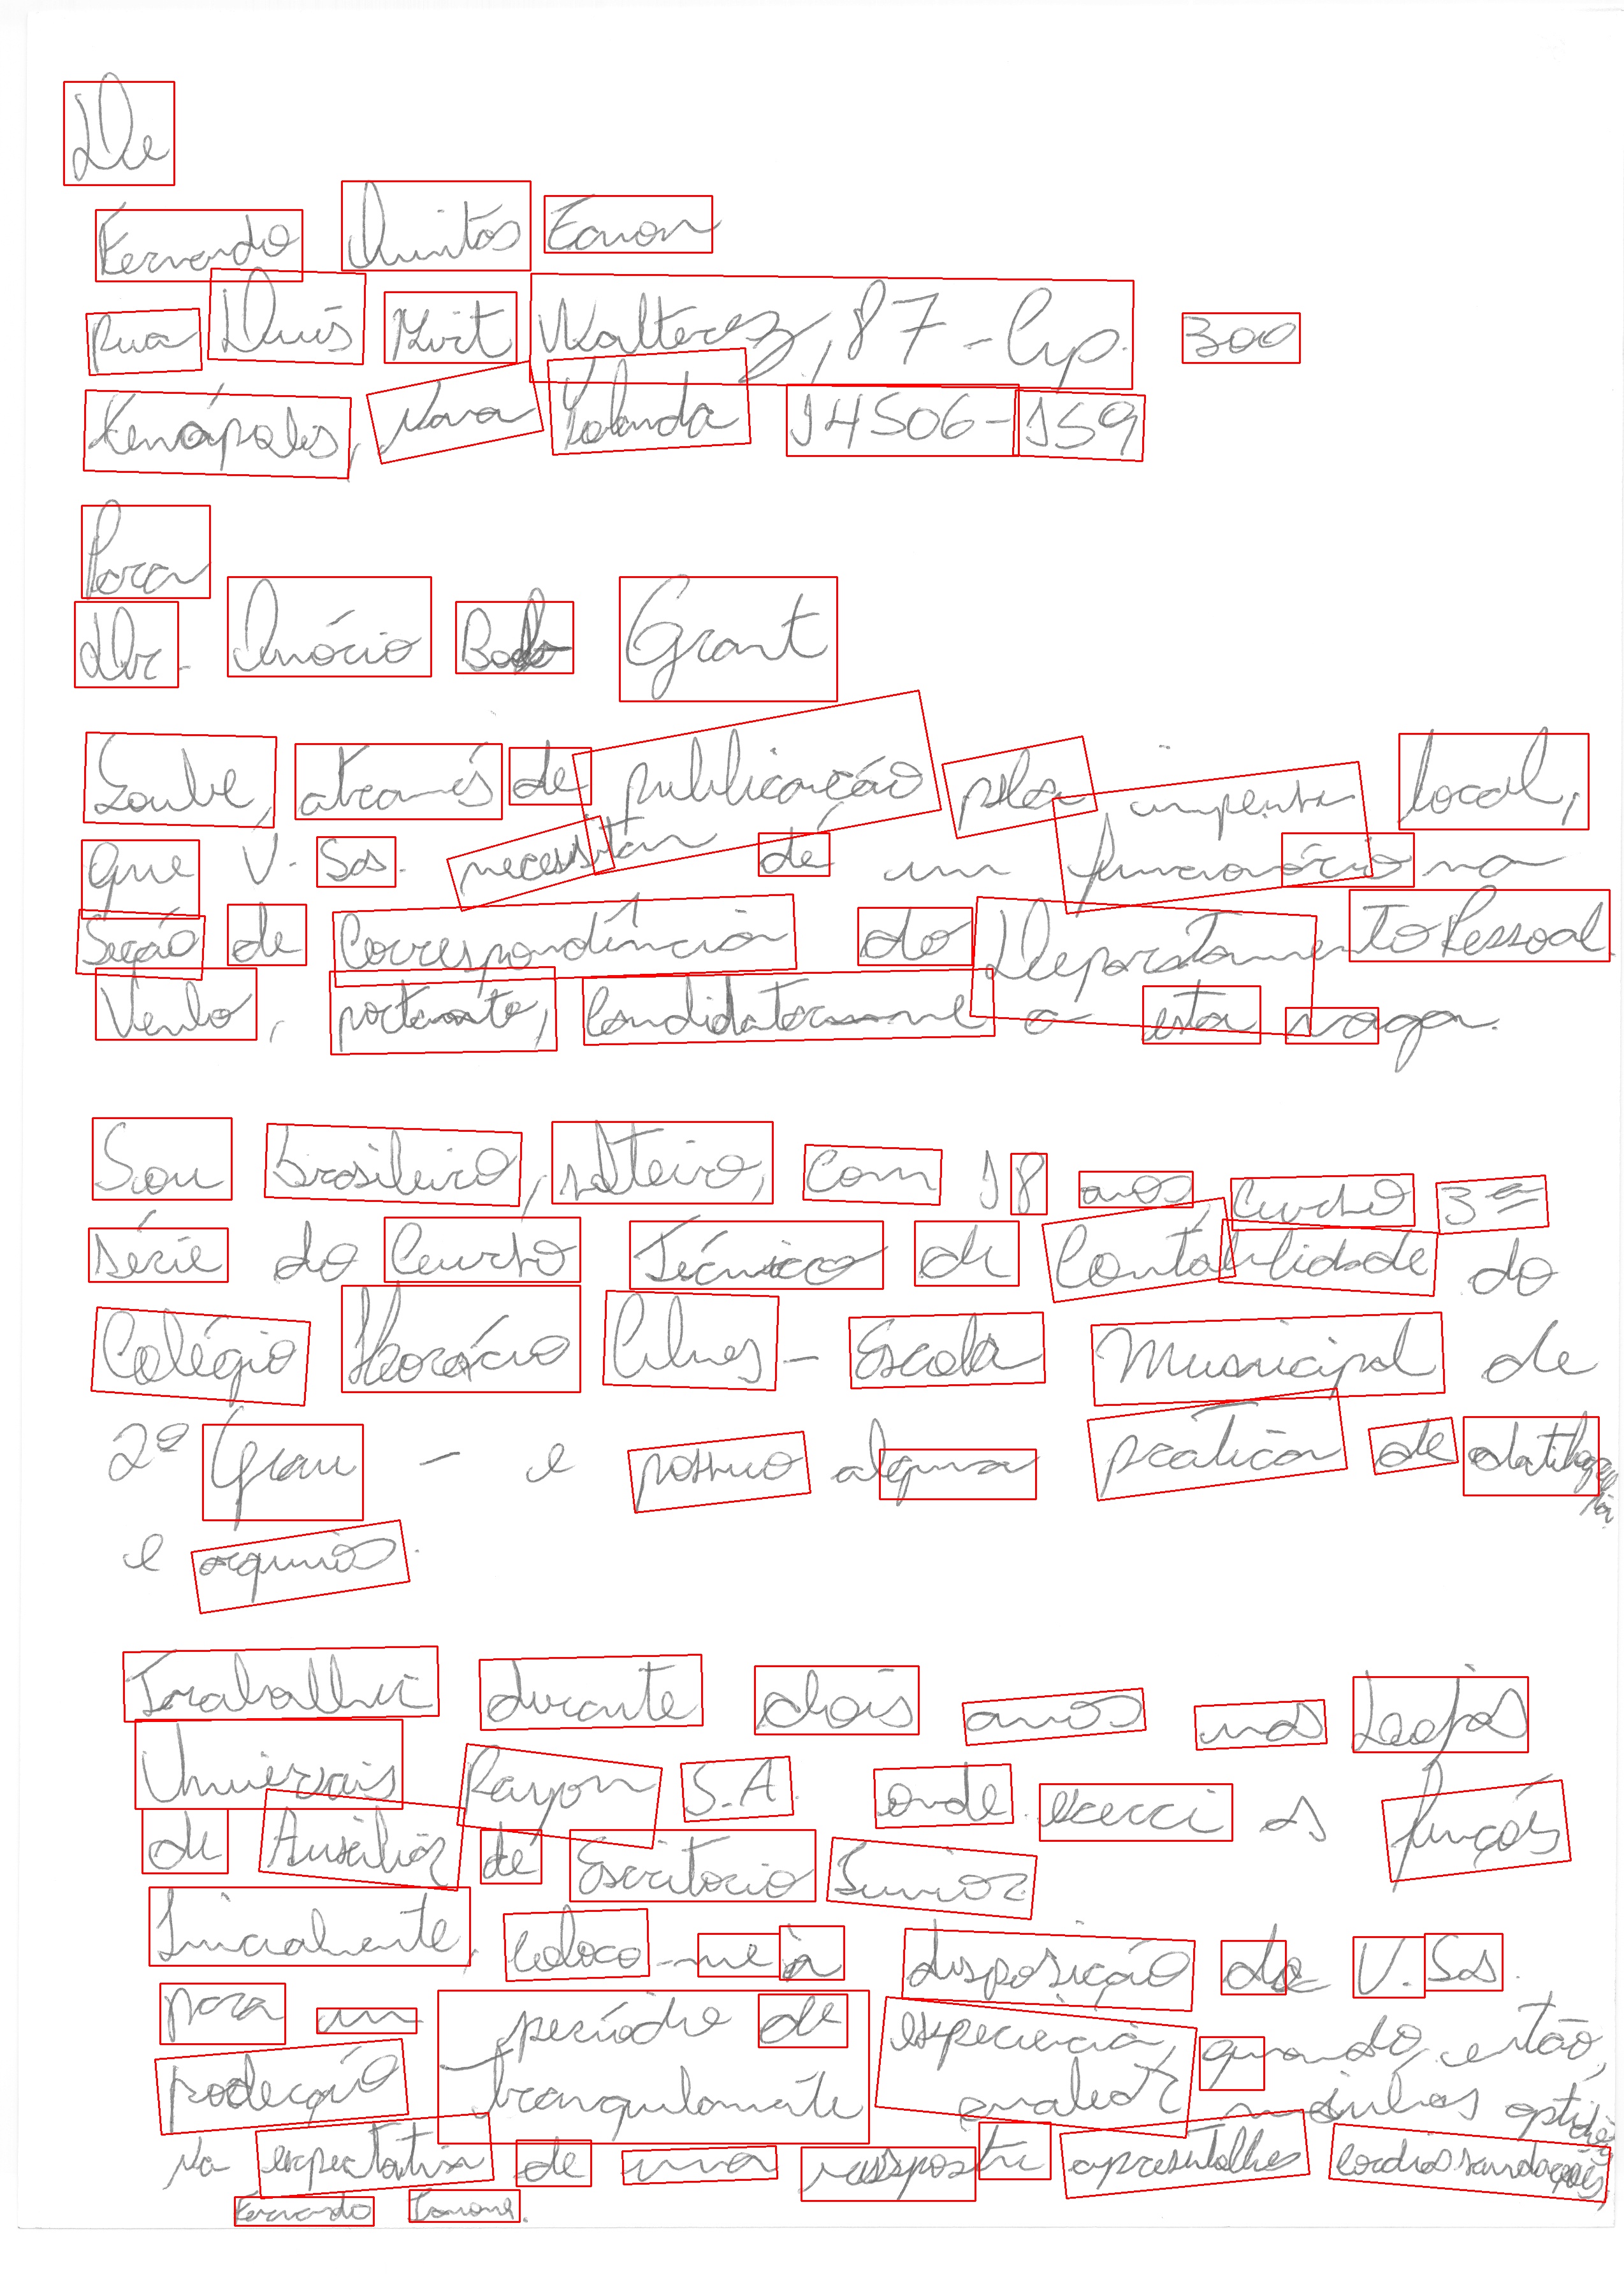 De
Fernando Quintas Eanon
Rua Luís Kurt Walterez, 87 - Cep. 300
Xenápoles, Nova Yolanda 14506-159
Para
Dr. Onócio Grant
Soube, através de publicação pela impensa local,
que V. Sas. necessitam de um funcionário na
Seção de Correspondência do Departamento Pessoal.
Venho, portanto, Candidatar-me a esta vaga.
Sou brasileiro, solteiro, com 18 anos Curso 3ª
série do Curso Técnico de Contabilidade do
Colégio Horácio - Escola Municipal de
2º Grau - e possuo alguma pratica de datilografia
e arquivos.
Trabalhei durante dois anos nas Loojas
Universais Rayon S.A. onde exerci as funçõs
de Auxiliar de Escritorio Junior.
Inicialmente, coloco-me à disposição de V. Sas.
para um períodie de experiencia, quando, então,
poderção tranquilamente avaliar minhas aptidões
Na expectativa de uma ressposta apresentalhes cordiais saundaçoẽs,
Fernando Eanone.